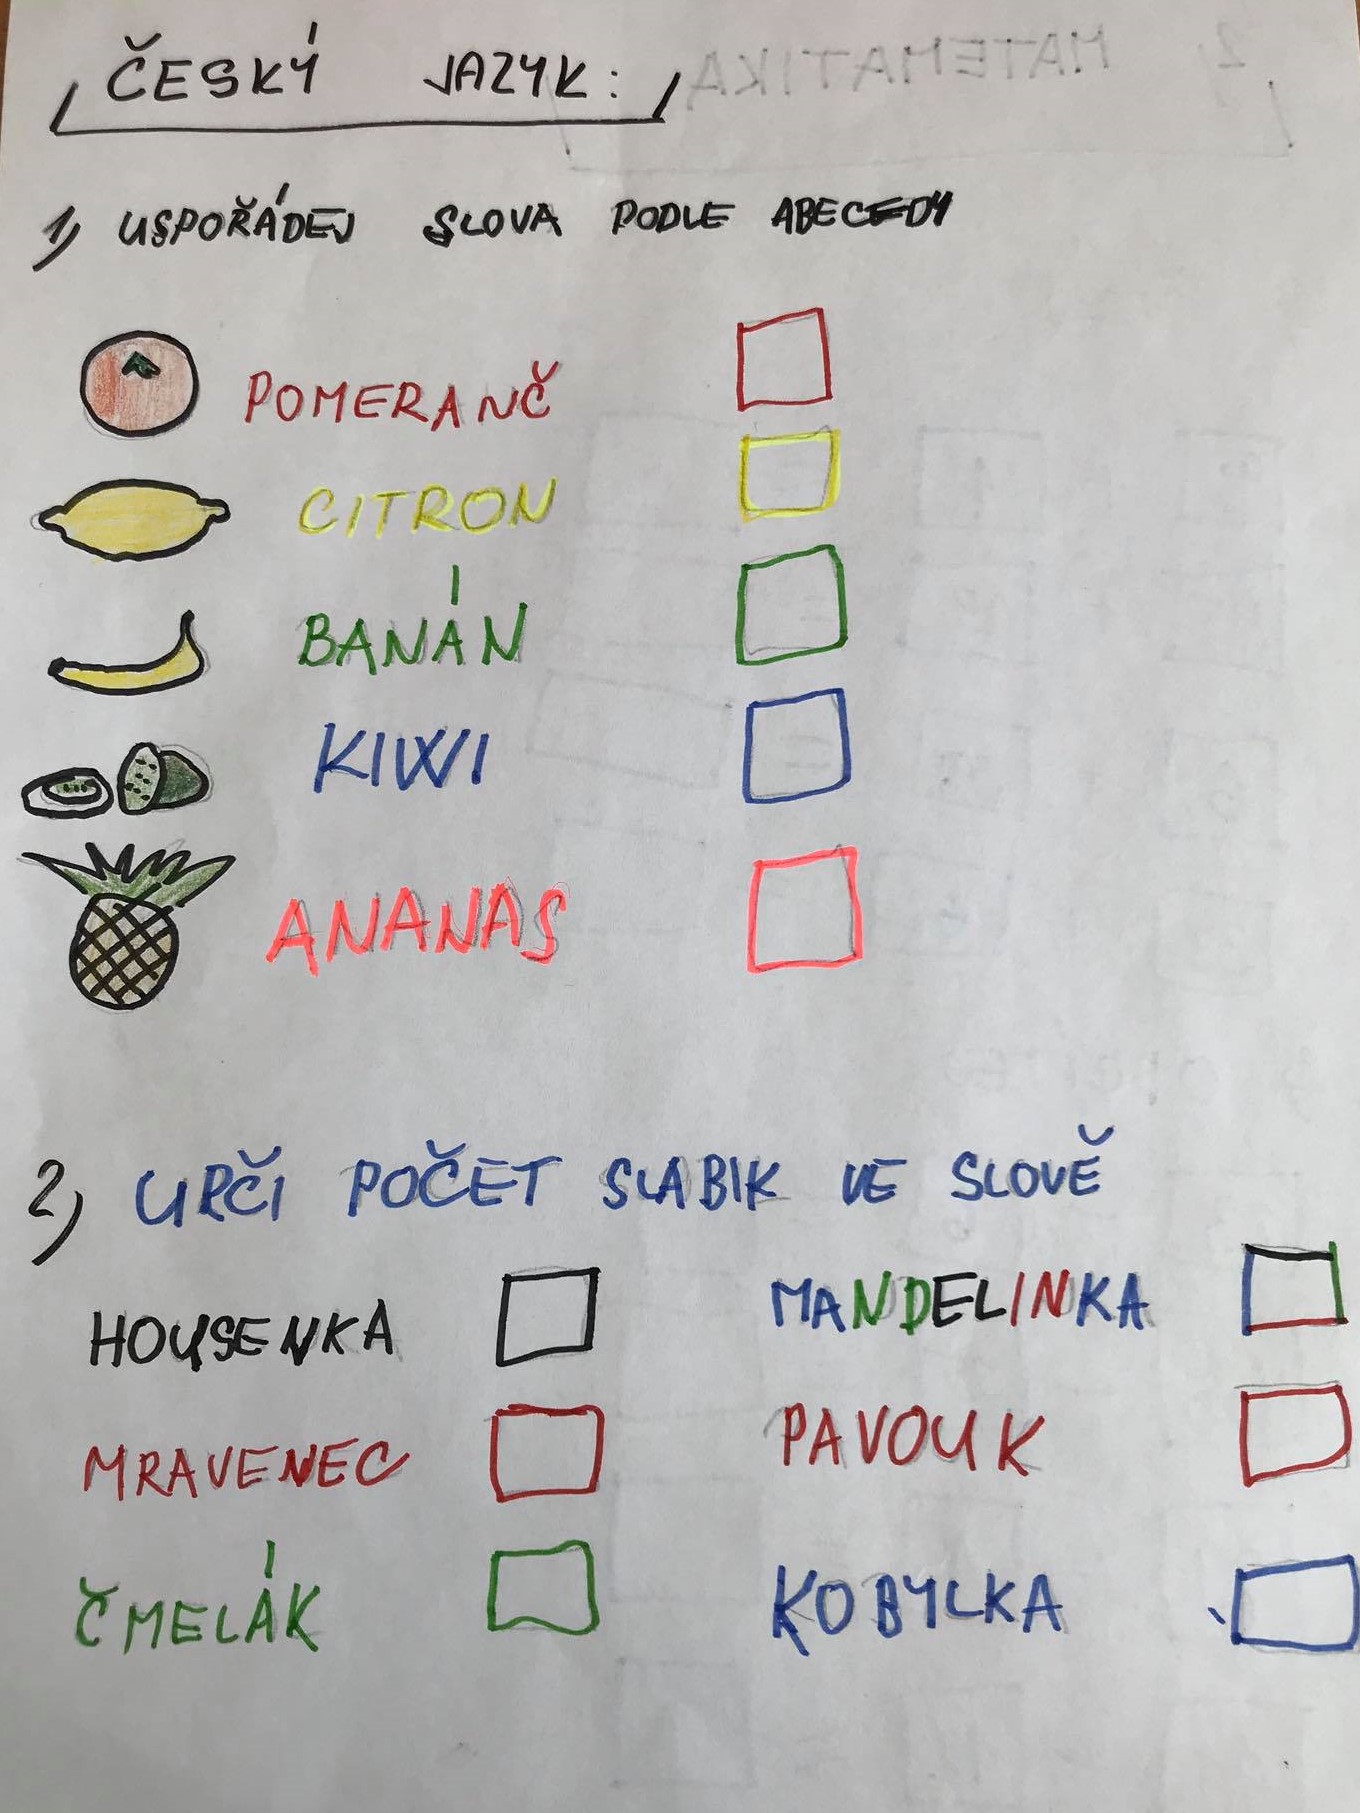 ČESKÝ JAZYK:
1) USPOŘÁDEJ SLOVA PODLE ABECEDY
POMERANČ
CITRON
BANÁN
KIWI
ANANAS
2) URČI POČET SLABIK VE SLOVĚ
HOUSENKA
MRAVENEC
ČMELÁK
MANDELINKA
PAVOUK
KOBYLKA
2) MATEMATIKA